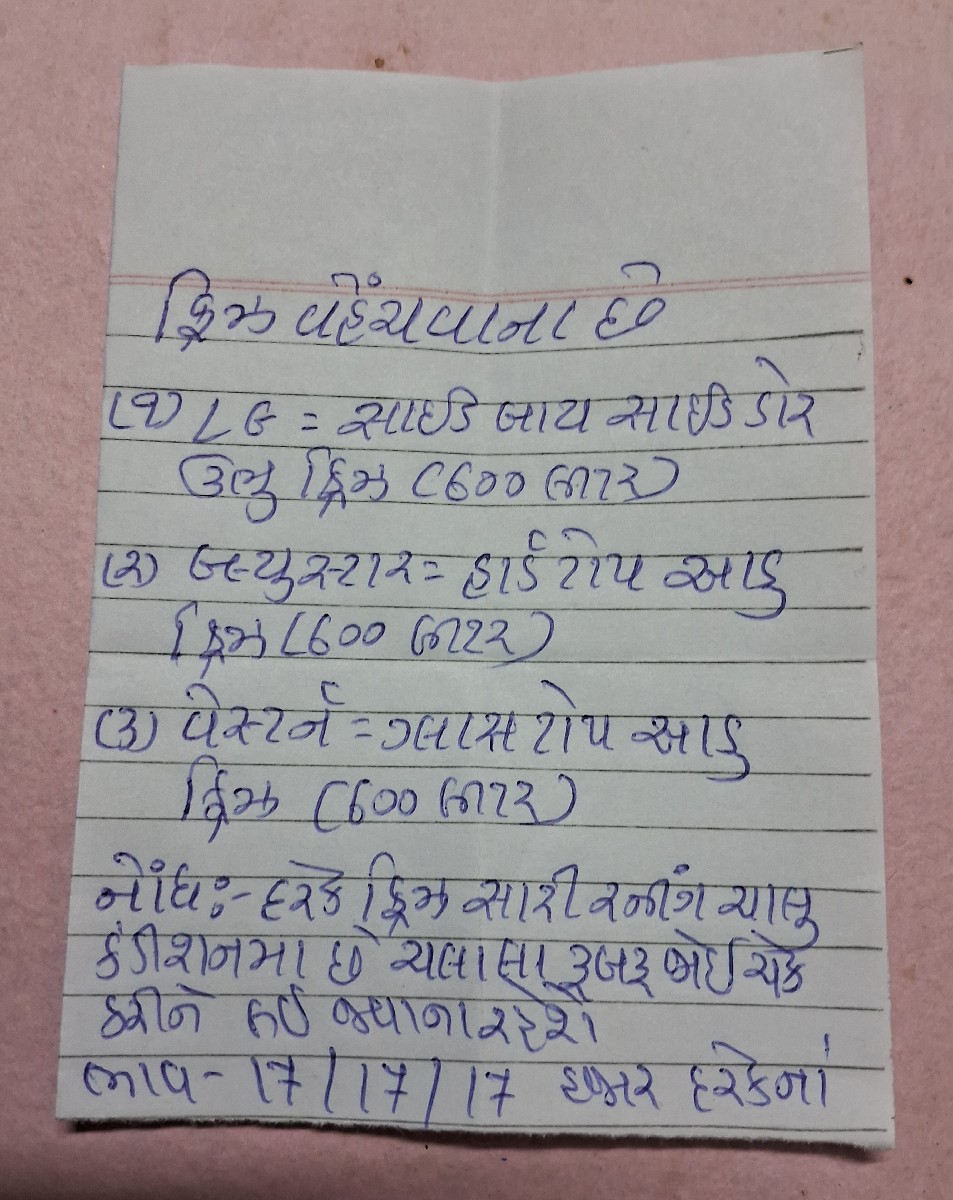 ફ્રિઝ વહેંચવાના છે
(૧) LG = સાઈડ બાય સાઈડ ડોર
ઉભુ ફ્રિઝ (600 લીટર)
(૨) બ્લ્યુસ્ટાર = હાર્ડ ટોપ આડુ
ફ્રિઝ (600 લીટર)
(૩) વેસ્ટર્ન = ગ્લાસ ટોપ આડુ
ફ્રિઝ (600 લીટર)
નોંધ:- દરેક ફ્રિઝ સારી રનીંગ ચાલુ
કંડીશનમા છે ચલાલા રૂબરૂ જોઈ ચેક
કરીને લઈ જવાના રહેશે
ભાવ - 17 / 17 / 17 હજાર દરેકનાં